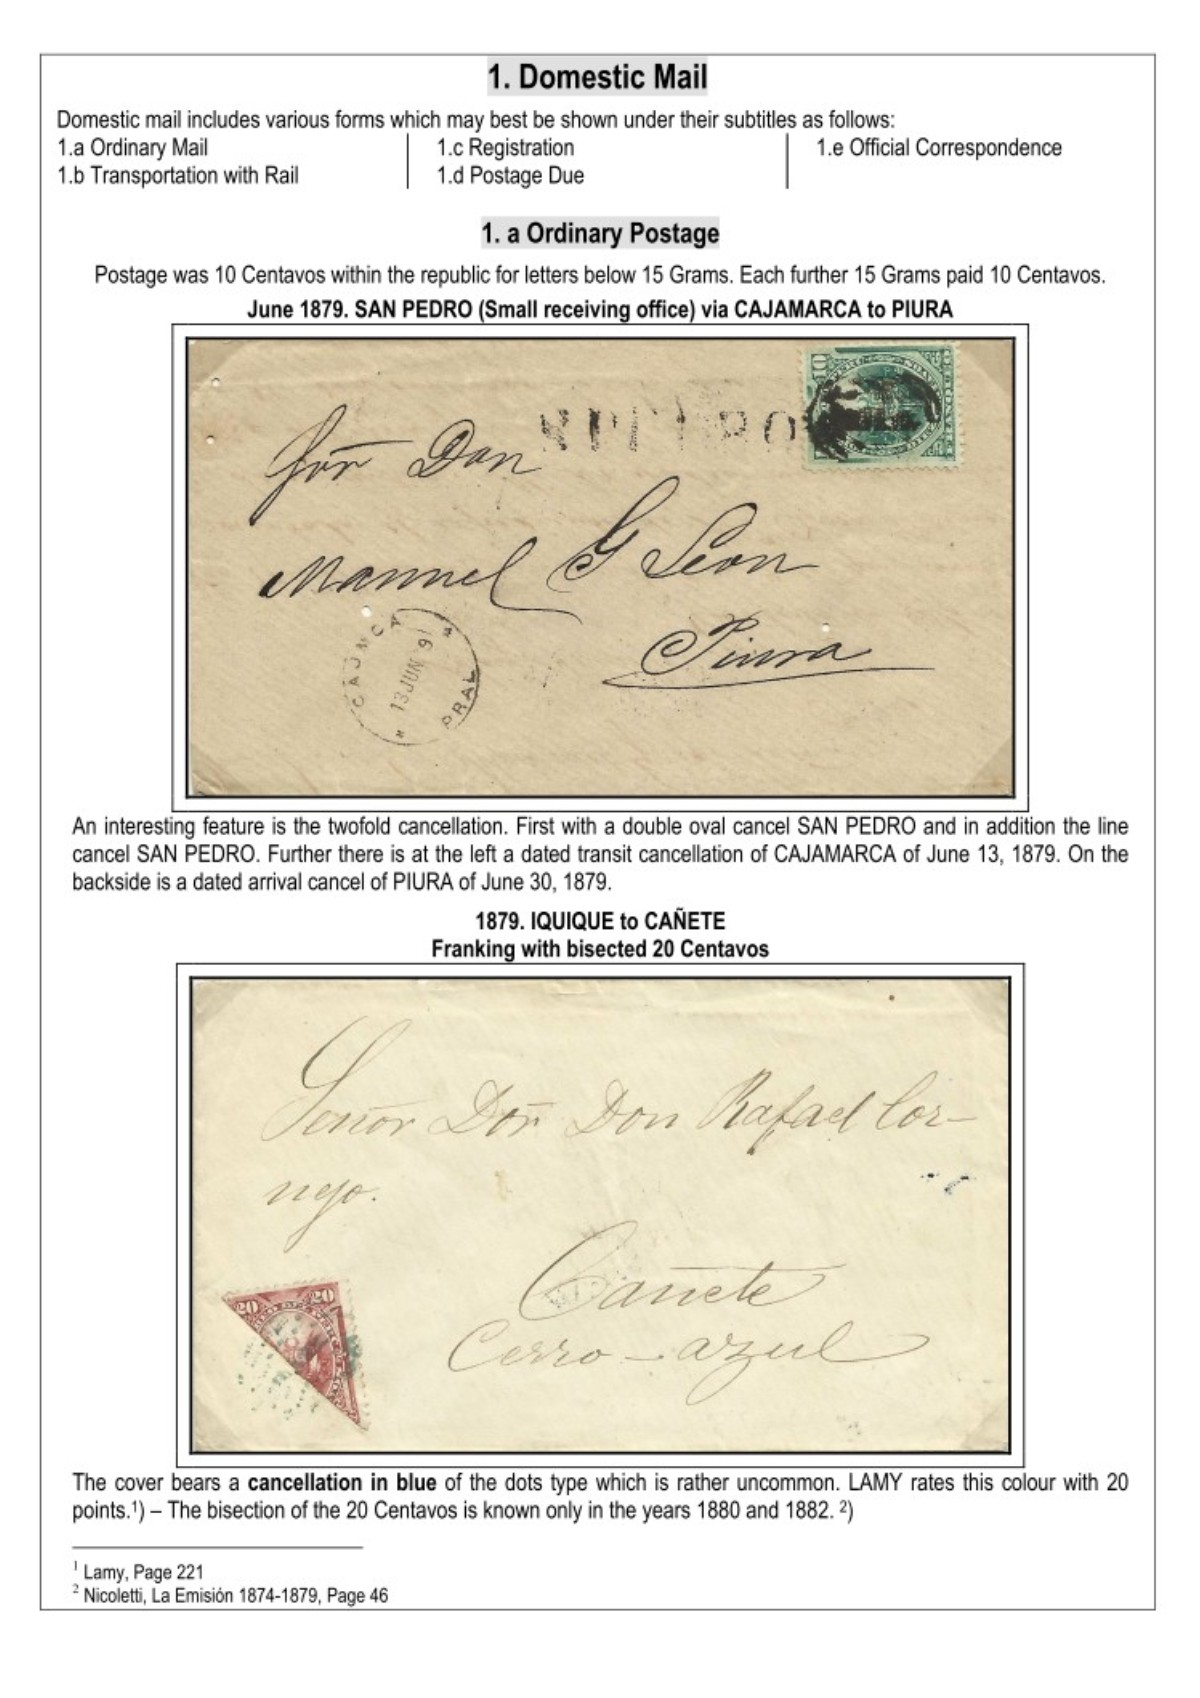 1. Domestic Mail
Domestic mail includes various forms which may best be shown under their subtitles as follows:
1.a Ordinary Mail
1.b Transportation with Rail
1.c Registration
1.d Postage Due
1.e Official Correspondence
1. a Ordinary Postage
Postage was 10 Centavos within the republic for letters below 15 Grams. Each further 15 Grams paid 10 Centavos.
June 1879. SAN PEDRO (Small receiving office) via CAJAMARCA to PIURA
10
Don
Manuel G Leon
Piura
13 JUN 9
PRAL
An interesting feature is the twofold cancellation. First with a double oval cancel SAN PEDRO and in addition the line
cancel SAN PEDRO. Further there is at the left a dated transit cancellation of CAJAMARCA of June 13, 1879. On the
backside is a dated arrival cancel of PIURA of June 30, 1879.
1879. IQUIQUE to CAÑETE
Franking with bisected 20 Centavos
Señor Don Don Rafael Cor-
nejo.
Cañete
Cerro-azul
20 20
The cover bears a cancellation in blue of the dots type which is rather uncommon. LAMY rates this colour with 20
points.¹) – The bisection of the 20 Centavos is known only in the years 1880 and 1882. ²)
1 Lamy, Page 221
2 Nicoletti, La Emisión 1874-1879, Page 46